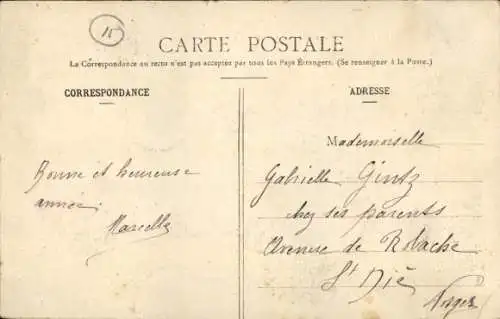 15
CARTE POSTALE
La Correspondance au recto n'est pas acceptée par tous les Pays Étrangers. (Se renseigner à la Poste.)
CORRESPONDANCE
ADRESSE
Bonne et heureuse
année
Marcelle
Mademoiselle
Gabrielle Gintz
chez ses parents
Avenue de Robache
St Dié
Vosges